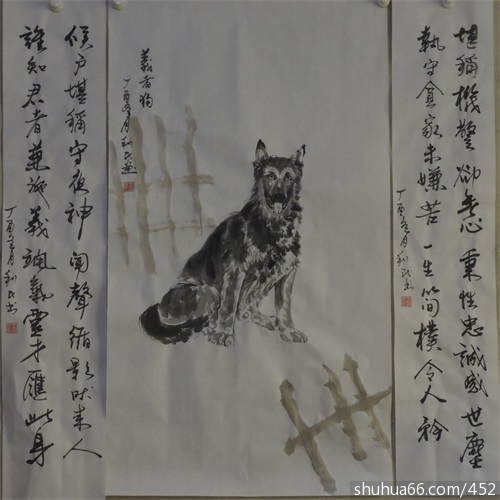 堪稱機警卻心秉性忠誠感世塵
執守貧家未嫌苦一生簡樸令人矜
丁酉冬月利民书
義者狗
丁酉冬月利民畫
候户堪稱守夜神聞聲循影吠来人
誰知君者兼誠義颯氣靈才匯此身
丁酉冬月利民书
shuhua66.com/452